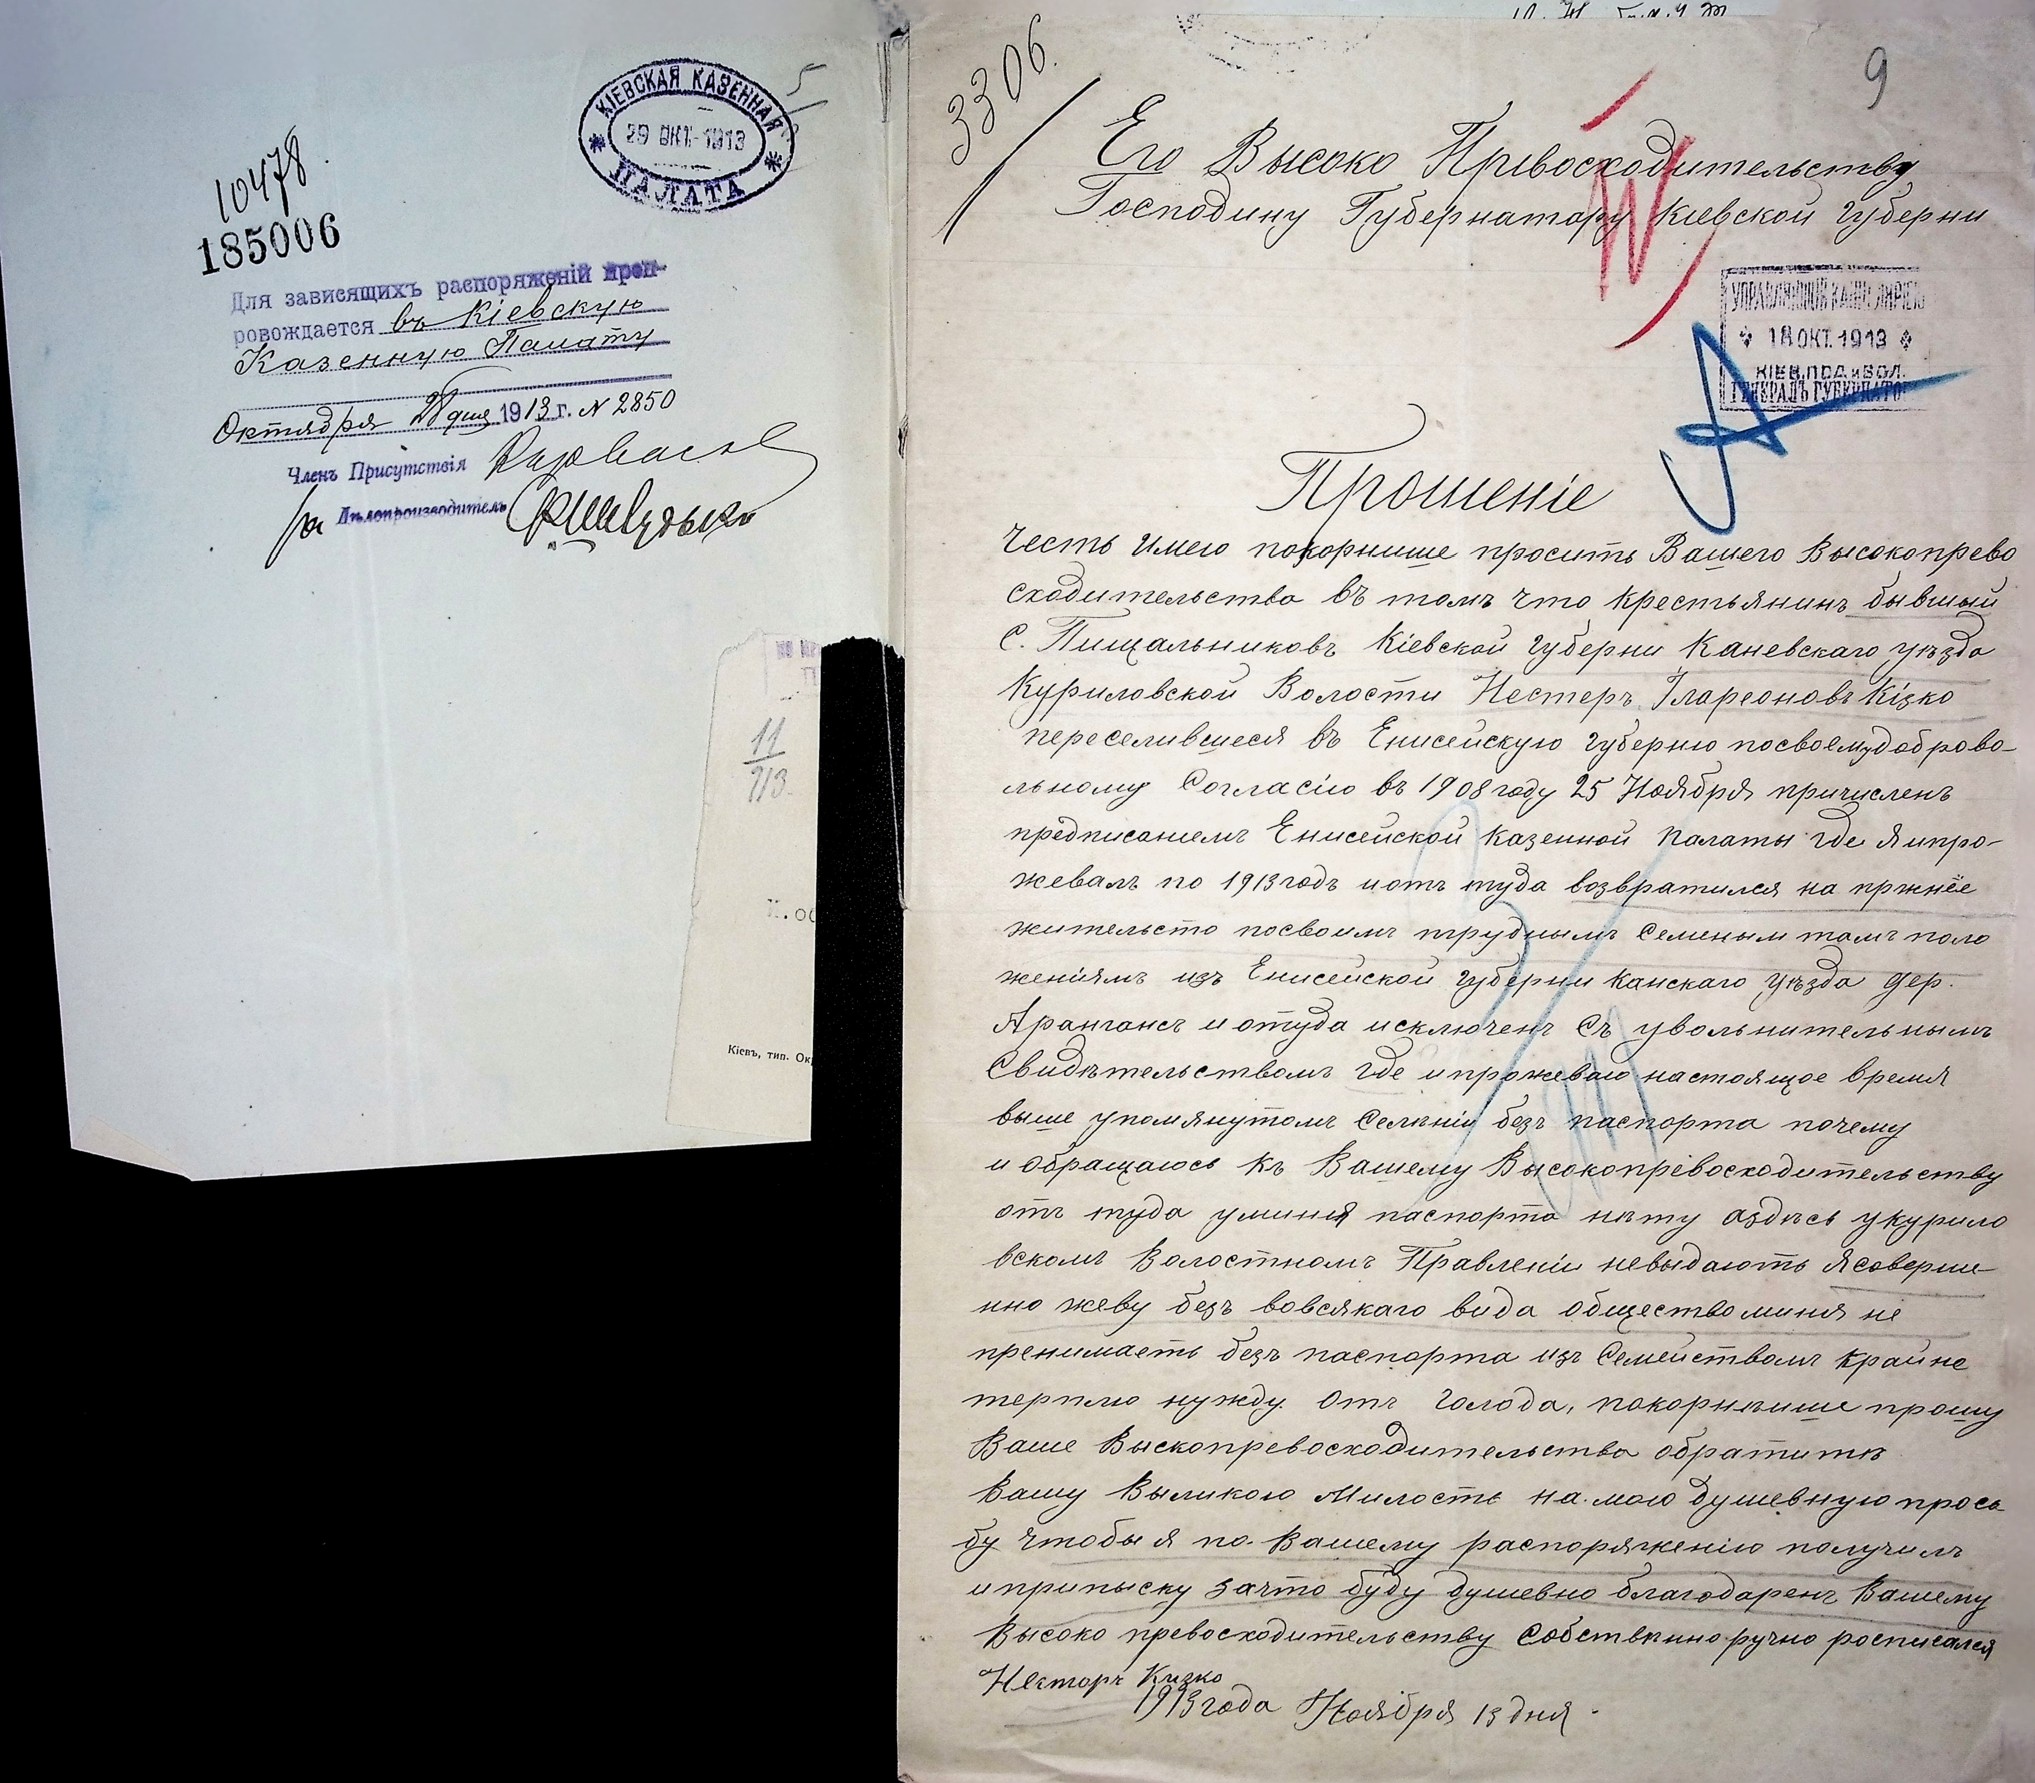 КІЕВСКАЯ КАЗЕННАЯ
29 ОКТ. 1913
ПАЛАТА
10478
185006
Для зависящихъ распоряженій преп-
ровождается въ Кіевскую
Казенную Палату
Октября 28 дня 1913 г. № 2850
Членъ Присутствія
Дѣлопроизводитель
11
913
Кіевъ, тип. Ок
3306.
9
Его Высоко Превосходительству
Господину Губернатору Кіевской Губерни
УПРАВЛЯЮЩІЙ КАНЦЕЛЯРІЕЮ
18 ОКТ. 1913
КІЕВ. ПОД. и ВОЛ.
ГЕНЕРАЛЪ ГУБЕРНАТО
Прошеніе
Честь имею покорнише просить Вашего Высокопрево
сходительства въ томъ что крестьянинъ бывшый
С. Пищальниковъ Кіевской Губерни Каневскаго уѣзда
Куриловской Волости Нестеръ Ілареоновъ Кізко
переселившеся въ Енисейскую губерню посвоемудоброво-
льному Согласію въ 1908 году 25 Ноября причисленъ
предписанiемъ Енисейской Казенной Палаты где я и про-
жевалъ по 1913 годъ и отъ туда возвратился на пржнее
жительсто посвоимъ труднымъ Семеным тамъ поло
женіямъ изъ Енисейской Губерни Канскаго Уѣзда дер.
Арангансъ и отуда исключенъ Съ увольнительнымъ
Свидѣтельствомъ где и прожеваю настоящое время
выше упомянутомъ Селѣніи безъ паспорта почему
и обращаюсь къ Вашему Высокопревосходительству
отъ туда уминя паспорта нѣту аздѣсь укурило
вскомъ Волостномъ Правленіи невыдають я соверше-
нно жеву безъ вовсякаго вида общество миня не
пренимаеть безъ паспорта изъ Семействомъ крайне
терплю нужду отъ голода, покорнѣише прошу
Ваше Выскопревосходительства обратитѣ
Вашу Выликою Милость на мою душевную прось
бу чтобы я по Вашему распоряженію получилъ
и припыску зачто буду душевно благодаренъ Вашему
Высоко превосходительству Собствѣнноручно росписался
Несторъ Кизко
1913 года Ноября 13 дня